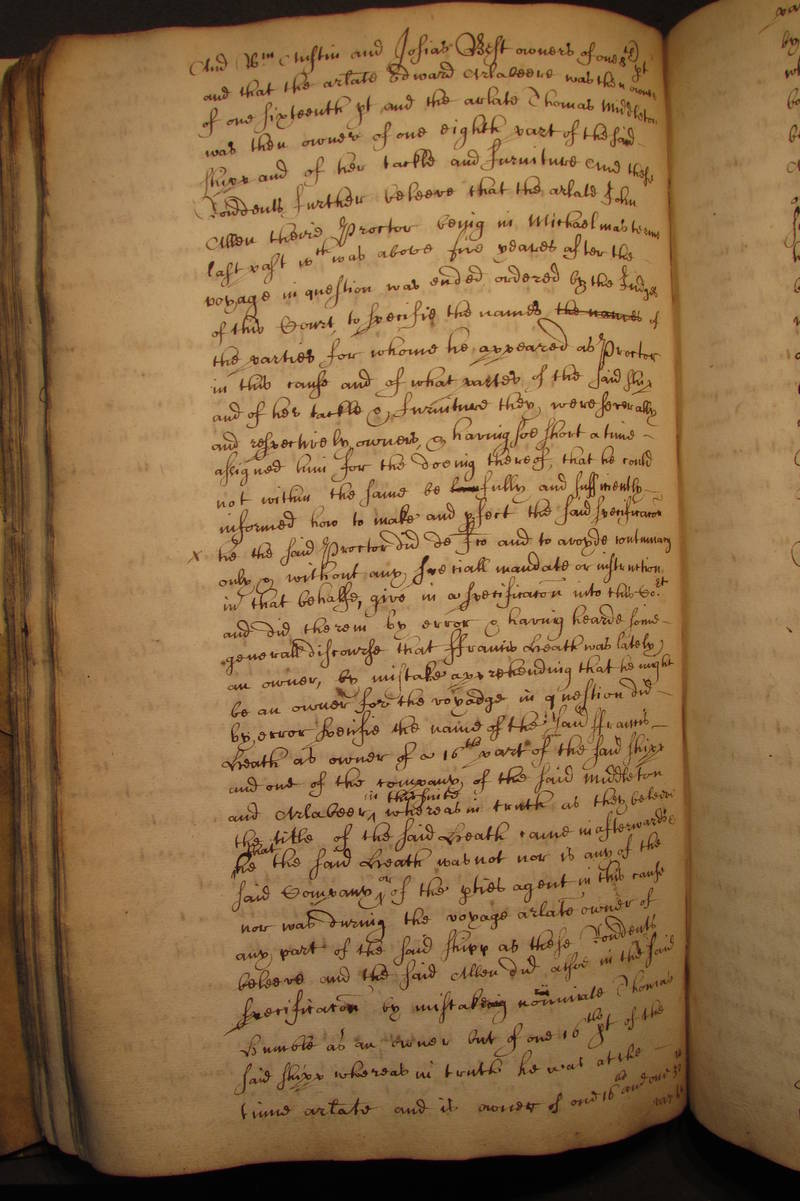 And Wm Austin and Josias Best owners of one 8th pt
and that the arlate Edward Arlabeere was then owner
of one sixteenth pt and the arlate Thomas Middleton
was then owner of one eighth part of the said
shipp and of her tackle and furniture And these
Rondents further beleeve that the arlate John
Allen theire Proctor being in Michaelmas terme
last past wch was above five yeares after the
voyage in question was ended ordered by the Judges
of this Court to specifie the names the names of
the parties for whome he appeared as Proctor
in this cause and of what partes of the said ship
and of her tackle & furniture they were severally
and respectively owners, & having soe short a time
assigned him for the doeing thereof, that he could
not within the same be fully and sufficiently
informed how to make and pfect the said specificaton
X he the said Proctor did de fco and to avoyde contumacy
only & without any speciall mandate or instruction
in that behalfe, give in a specificaton into this Cort
and did therein by error & having hearde some
generall discourse that ffrancis Heath was lately
an owner, by mistake apprehending that he might
be an owner for the voyadge in question did
by error specifie the name of the said ffrancis
Heath as owner of a 16th part of the said shipp
and one of the company of the said Middleton
in this suite
and Arlabeer, whereas in truth as they beleeve
the title of the said Heath came in afterwards
that
he the said Heath was not nor is any of the
said Company or of the pties agent in this cause
nor was during the voyage arlate owner of
any part of the said shipp as these Rondents
beleeve and the said Allen did alsoe in the said
specificaton by mistakeing nominate Thomas
Humble as an owner but of one 16th pt of the
said shipp whereas in truth he was at the
time arlate and is owner of one 16th and one 32
parte